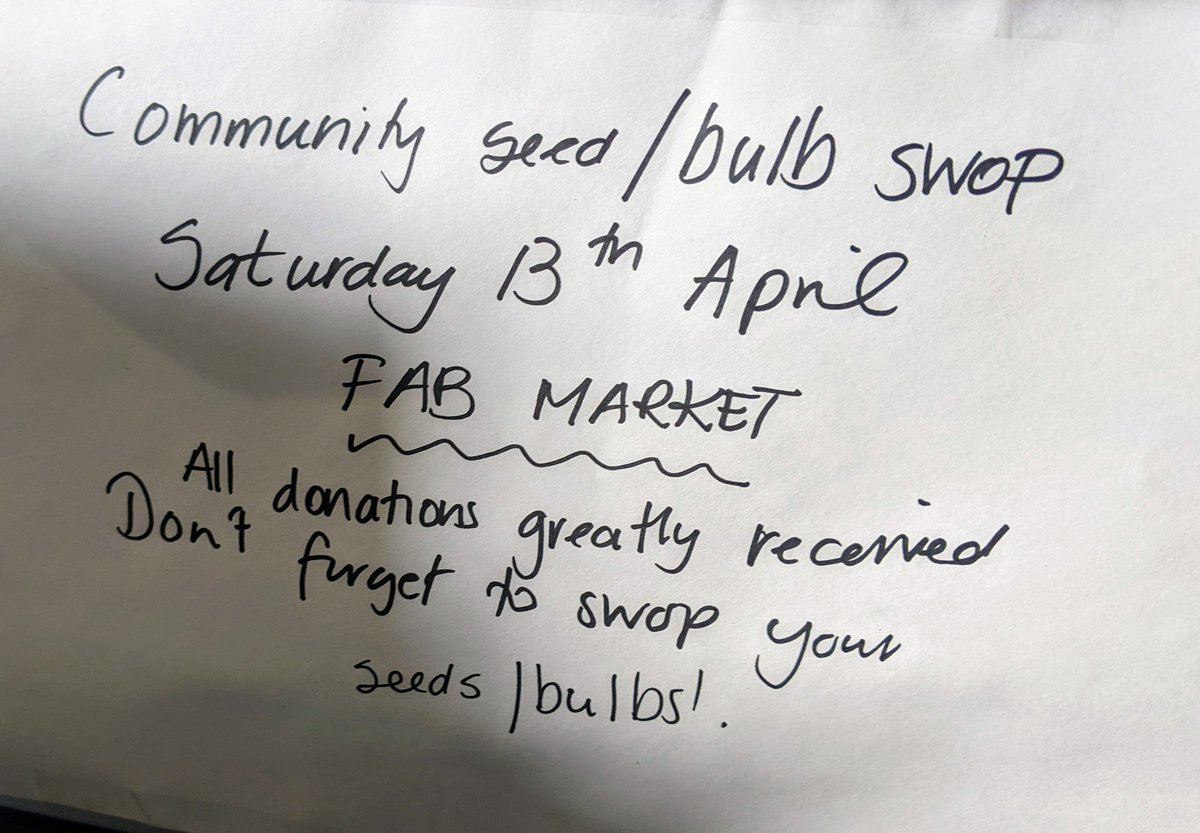 Community seed/bulb swop
Saturday 13th April
FAB MARKET
All donations greatly received
Don't forget to swop your
seeds/bulbs!.